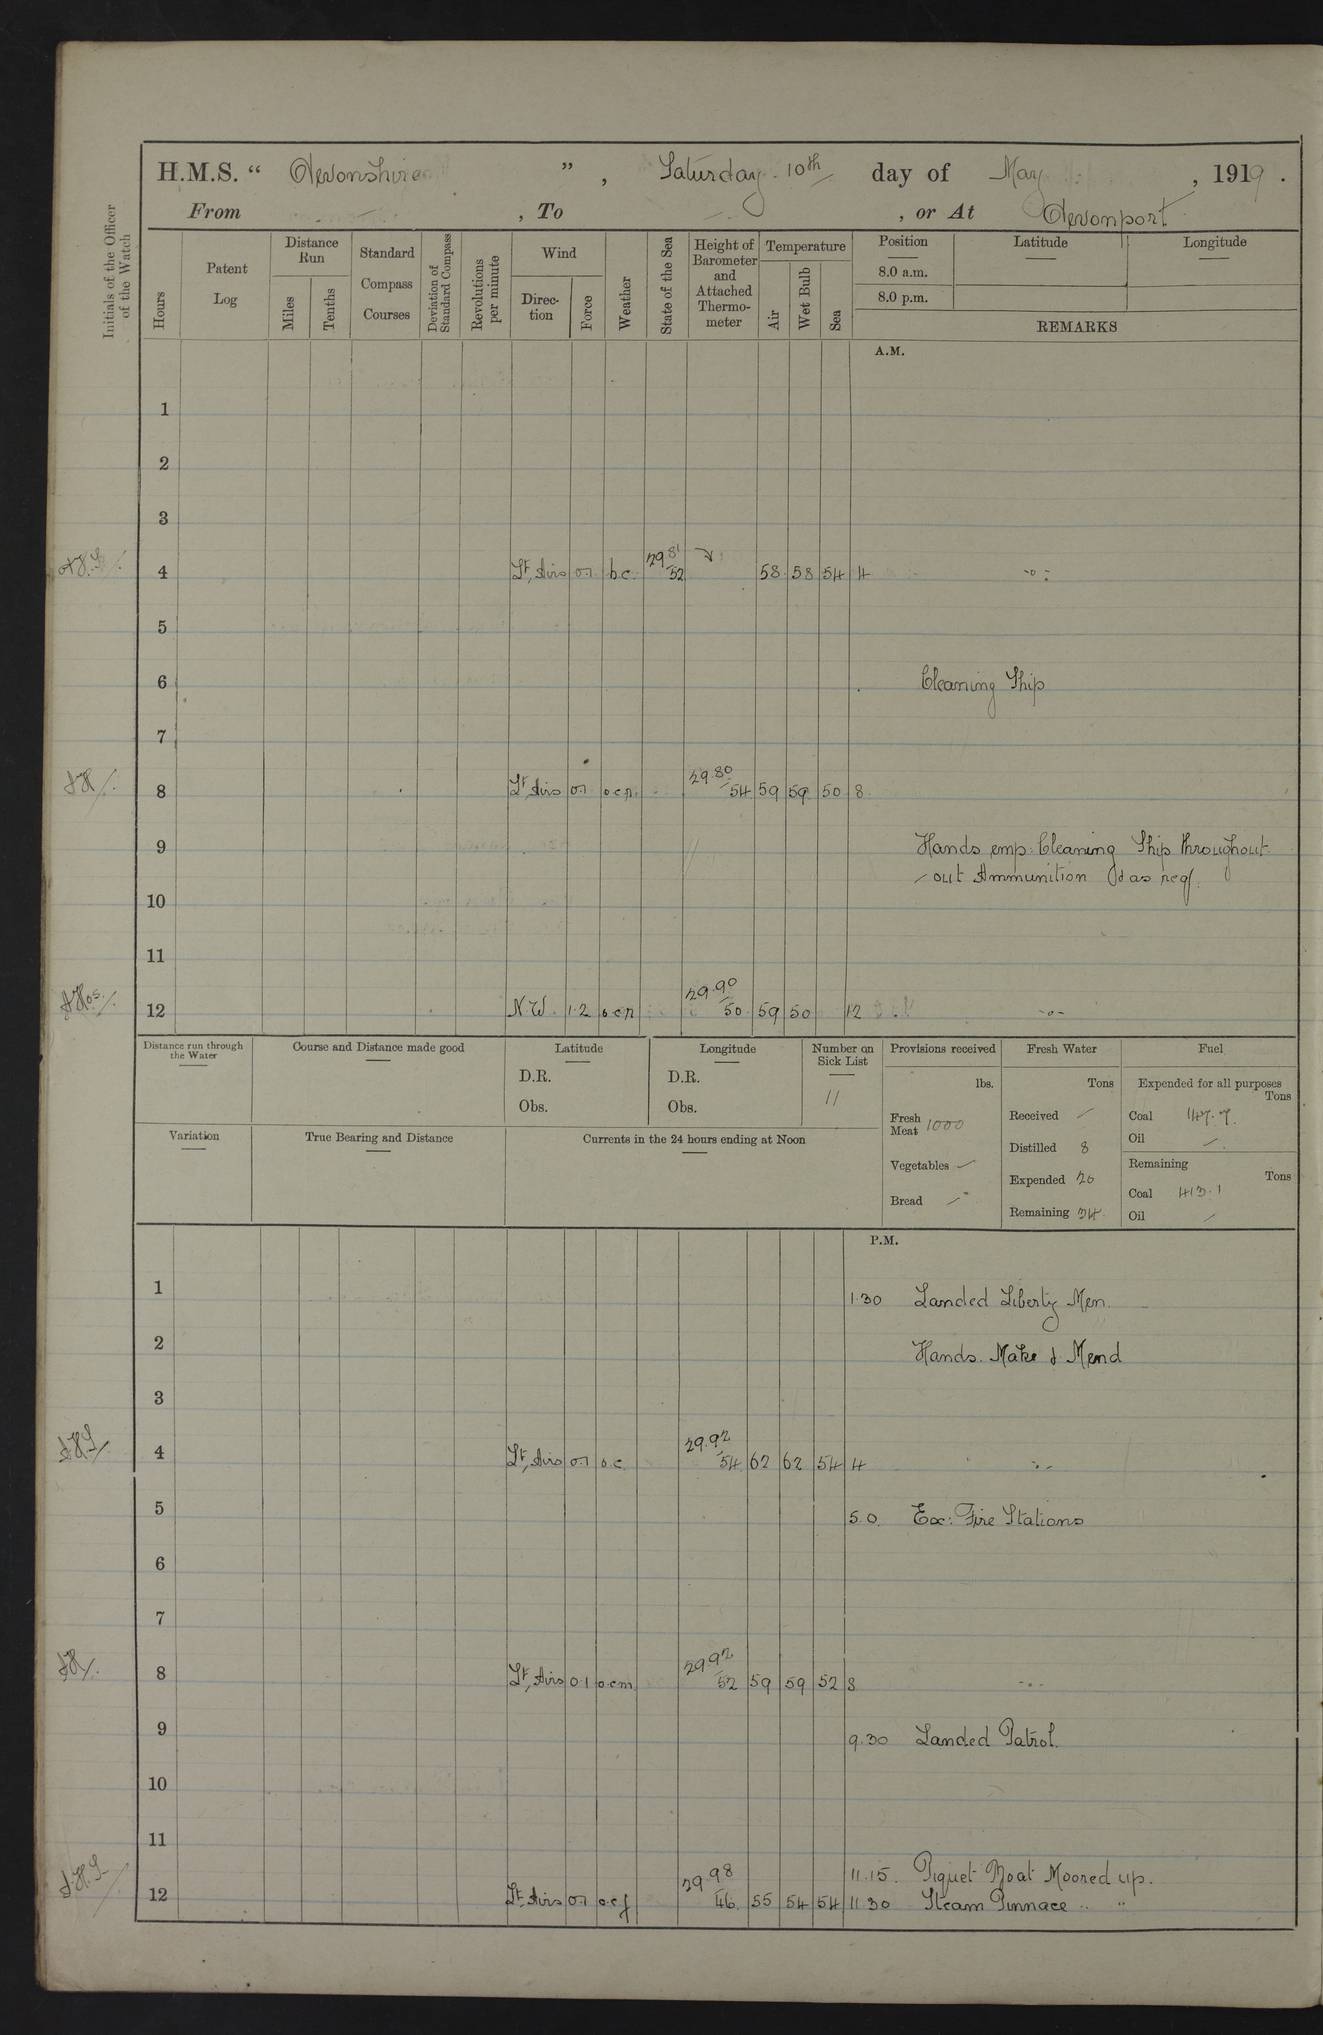 H.M.S. “ Devonshire ” , Saturday 10th day of May , 1919 .
From — , To — , or At Devonport
Initials of the Officer of the Watch
Hours
Patent Log
Distance Run
Miles
Tenths
Standard Compass Courses
Deviation of Standard Compass
Revolutions per minute
Wind
Direc-tion
Force
Weather
State of the Sea
Height of Barometer and Attached Thermo-meter
Temperature
Air
Wet Bulb
Sea
Position
8.0 a.m.
8.0 p.m.
Latitude
Longitude
REMARKS
A.M.
1
2
3
4 Lt, Airs 0.1 b.c. 29.81 52 58 58 54 4
5
6 Cleaning Ship
7
8 Lt, Airs 0.1 o.c.r. 29.80 54 59 59 50 8
9 Hands emp: Cleaning Ship throughout
out Ammunition & as req.
10
11
12 N.W. 1.2 o.c.r 29.90 50 59 50 12 -o-
Distance run through the Water
Course and Distance made good
Latitude
D.R.
Obs.
Longitude
D.R.
Obs.
Number on Sick List
11
Provisions received
lbs.
Fresh Meat 1000
Vegetables —
Bread —
Fresh Water
Tons
Received —
Distilled 8
Expended 20
Remaining 34
Fuel
Expended for all purposes
Tons
Coal 47.7
Oil —
Remaining
Tons
Coal 413.1
Oil —
Variation
True Bearing and Distance
Currents in the 24 hours ending at Noon
P.M.
1 1.30 Landed Liberty Men.
2 Hands. Make & Mend
3
4 Lt, Airs 0.1 o.c. 29.92 54 62 62 54 4
5 5.0. Ex: Fire Stations
6
7
8 Lt, Airs 0.1 o.c.m. 29.92 52 59 59 52 8
9 9.30 Landed Patrol.
10
11
11.15. Piquet Boat Moored up.
12 Lt, Airs 0.1 o.c.f 29.98 46 55 54 54 11.30 Steam Pinnace " "